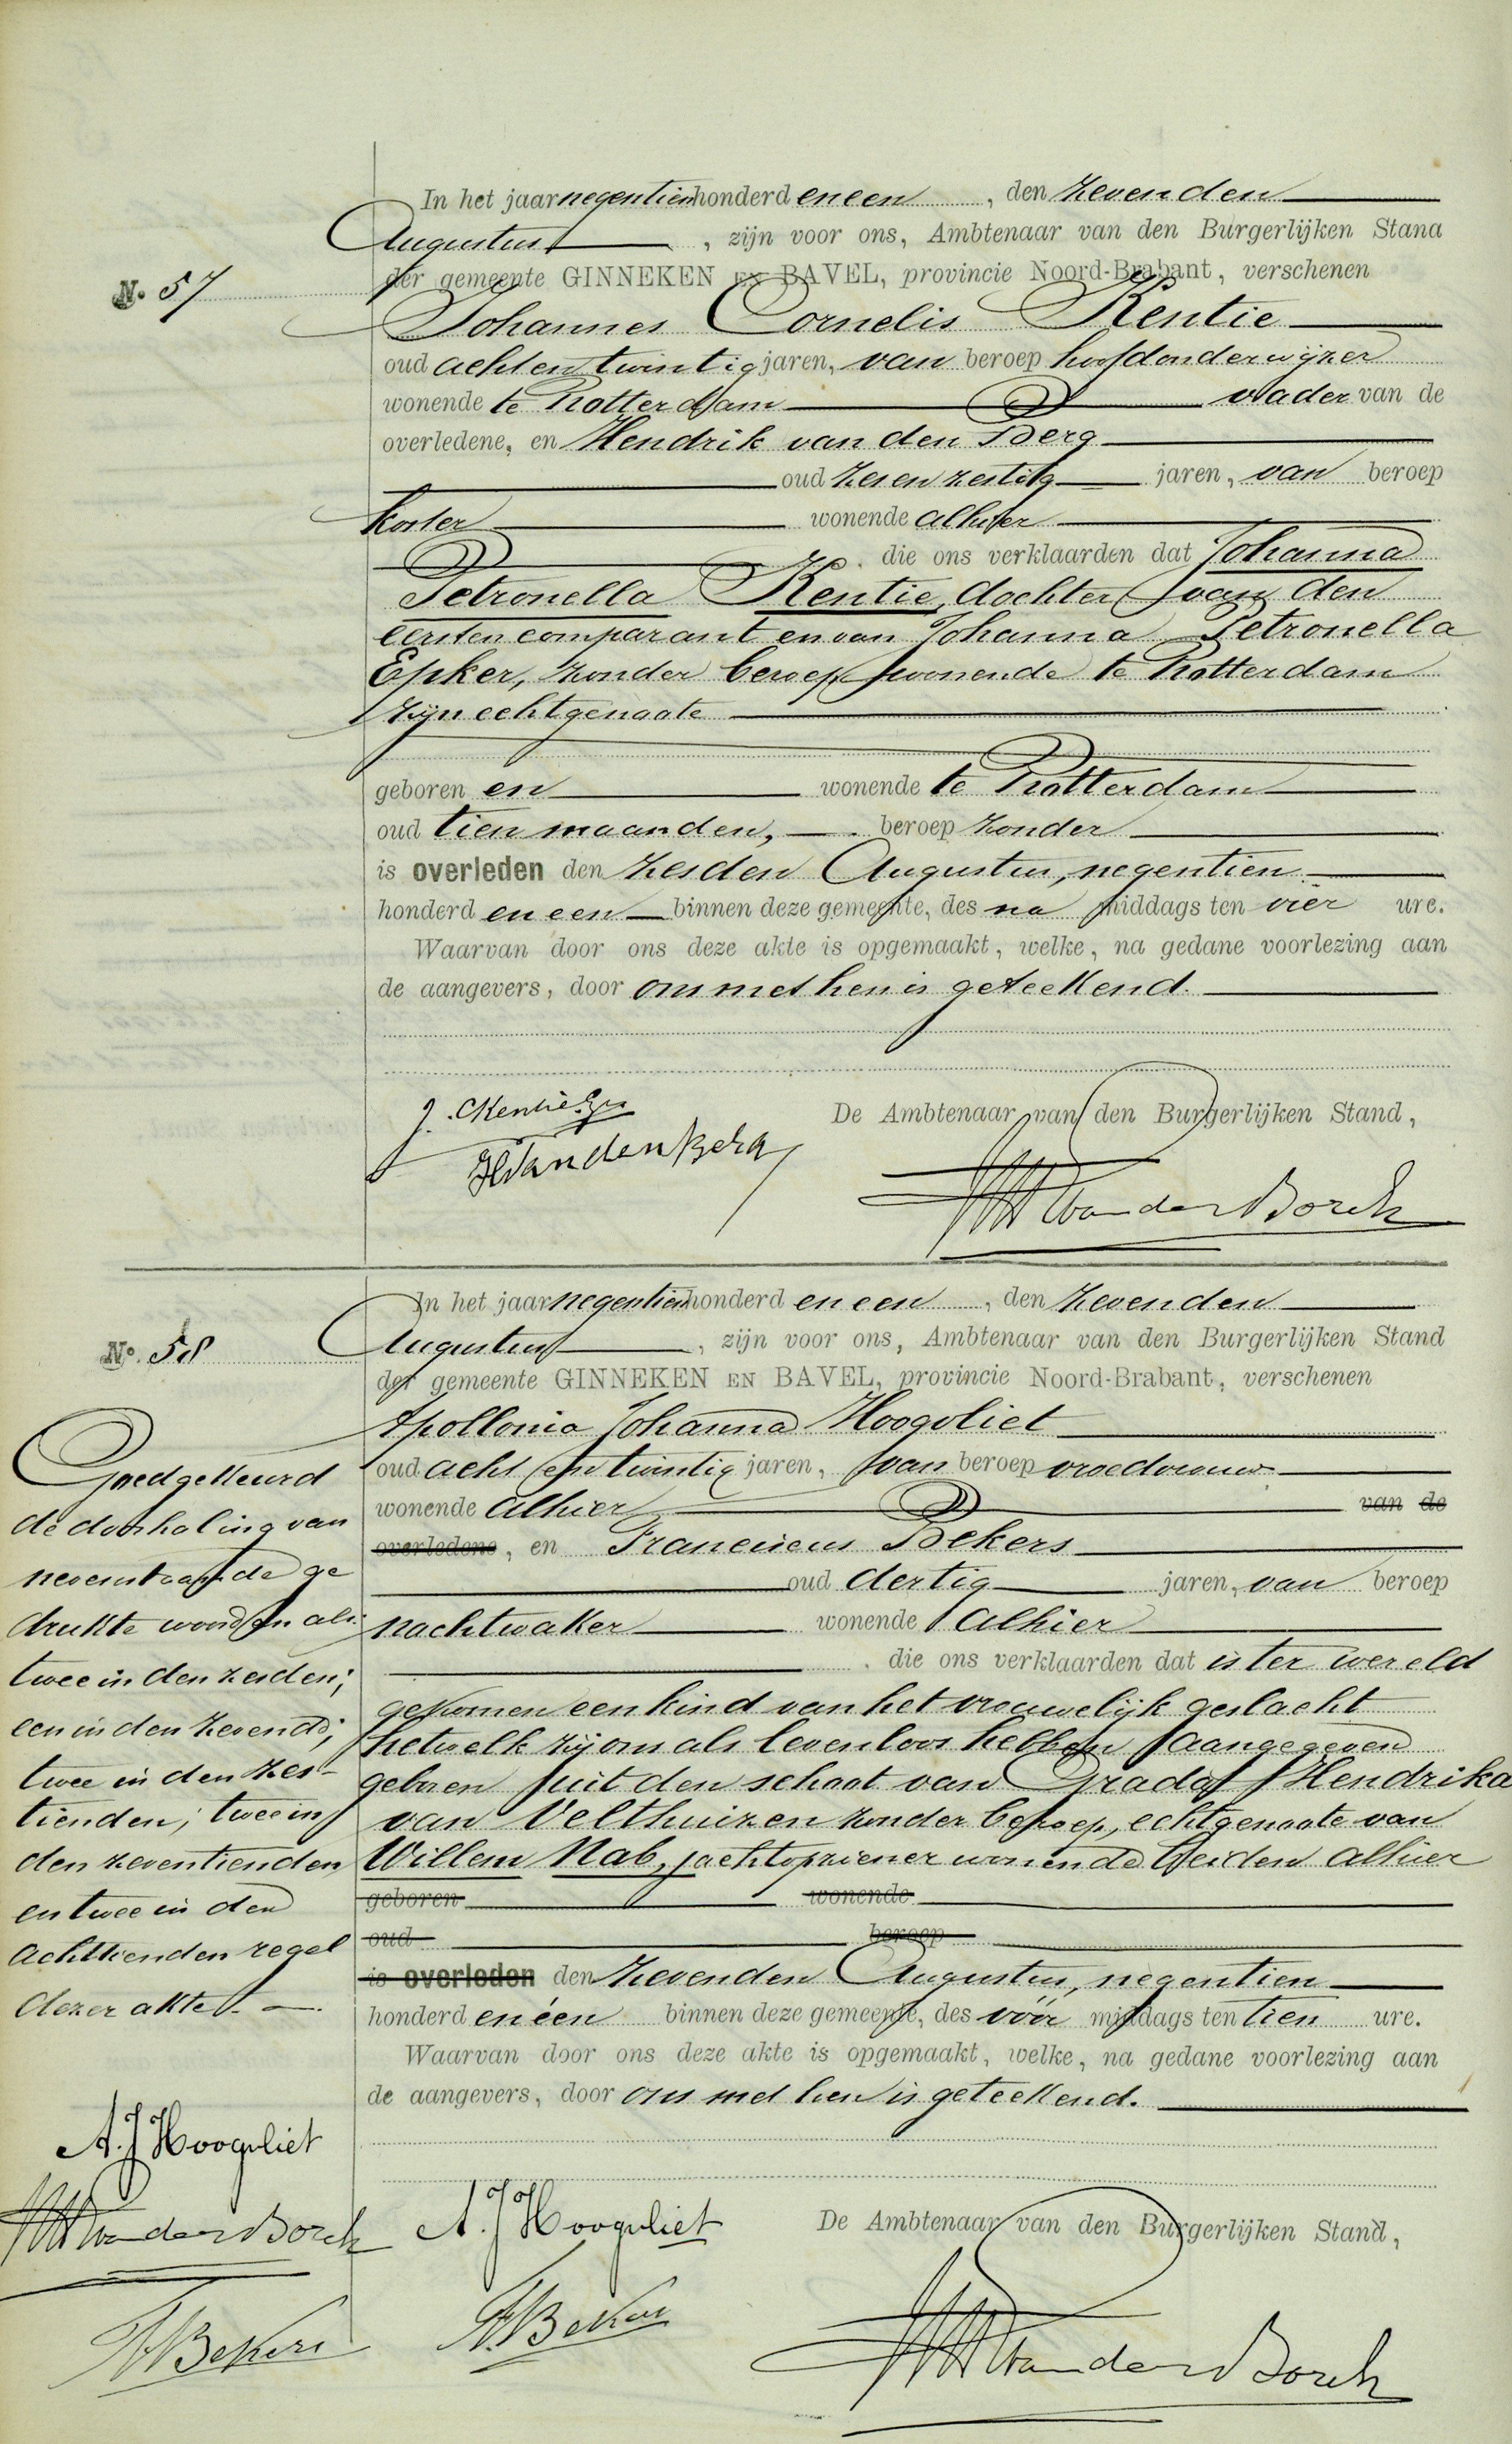 In het jaar negentienhonderd en een, den zevenden
Augustus, zijn voor ons, Ambtenaar van den Burgerlijken Stand
der gemeente GINNEKEN EN BAVEL, provincie Noord-Brabant, verschenen
No. 57
Johannes Cornelis Kentie
oud achtentwintig jaren, van beroep hoofdonderwijzer
wonende te Rotterdam vader van de
overledene, en Hendrik van den Berg
oud zesenzestig jaren, van beroep
koster wonende alhier
die ons verklaarden dat Johanna
Petronella Kentie, dochter van den
eersten comparant en van Johanna Petronella
Epker, zonder beroep, wonende te Rotterdam
zijn echtgenoote
geboren en wonende te Rotterdam
oud tien maanden, beroep zonder
is overleden den zesden Augustus, negentien
honderd en een binnen deze gemeente, des na middags ten vier ure.
Waarvan door ons deze akte is opgemaakt, welke, na gedane voorlezing aan
de aangevers, door ons met hen is geteekend.
De Ambtenaar van den Burgerlijken Stand,
J. C Kentie
H van den Berg
van der Borch
In het jaar negentienhonderd en een, den zevenden
Augustus, zijn voor ons, Ambtenaar van den Burgerlijken Stand
der gemeente GINNEKEN EN BAVEL, provincie Noord-Brabant, verschenen
No. 58
Apollonia Johanna Hoogvliet
oud acht en twintig jaren, van beroep vroedvrouw
wonende alhier van de
overledene, en Franciscus Bekers
oud dertig jaren, van beroep
nachtwaker wonende alhier
die ons verklaarden dat is ter wereld
gekomen een kind van het vrouwelijk geslacht
hetwelk zij ons als levenloos hebben aangegeven
geboren uit den schoot van Grada Hendrika
van Velthuizen zonder beroep, echtgenoote van
Willem Nab, jachtopziener wonende beiden alhier
geboren wonende
oud beroep
is overleden den zevenden Augustus, negentien
honderd en één binnen deze gemeente, des vóór middags ten tien ure.
Waarvan door ons deze akte is opgemaakt, welke, na gedane voorlezing aan
de aangevers, door ons met hen is geteekend.
Goedgekeurd
de doorhaling van
nevenstaande ge
drukte woorden als:
twee in den zesden;
een in den zevende;
twee in den zes-
tienden; twee in
den zeventienden
en twee in den
achttienden regel
dezer akte.
A. J Hoogvliet
van der Borch
F Bekers
A. J Hoogvliet
F Bekers
De Ambtenaar van den Burgerlijken Stand,
van der Borch